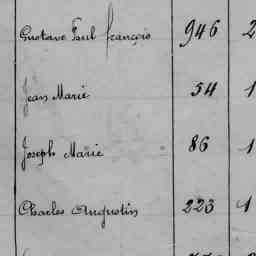 Gustave Paul françois 946 2
Jean Marie 54 1
Joseph Marie 86 1
Charles Augustin 223 1